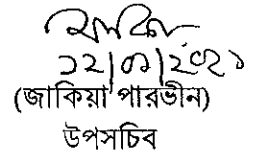 ১২|০১|২০২১
(জাকিয়া পারভীন)
উপসচিব